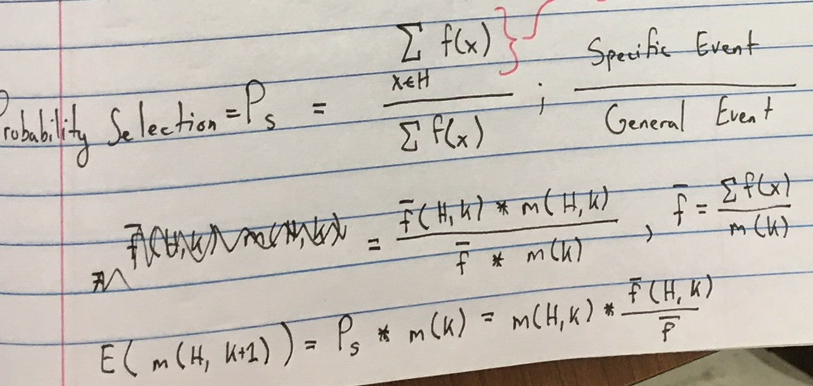 Probability Selection = Ps = ∑ f(x) x∈H / ∑ f(x) ; Specific Event / General Event
= f̄(H,k) * m(H,k) / f̄ * m(k) , f̄ = ∑f(x) / m(k)
E( m(H, k+1) ) = Ps * m(k) = m(H,k) * f̄(H,k) / f̄